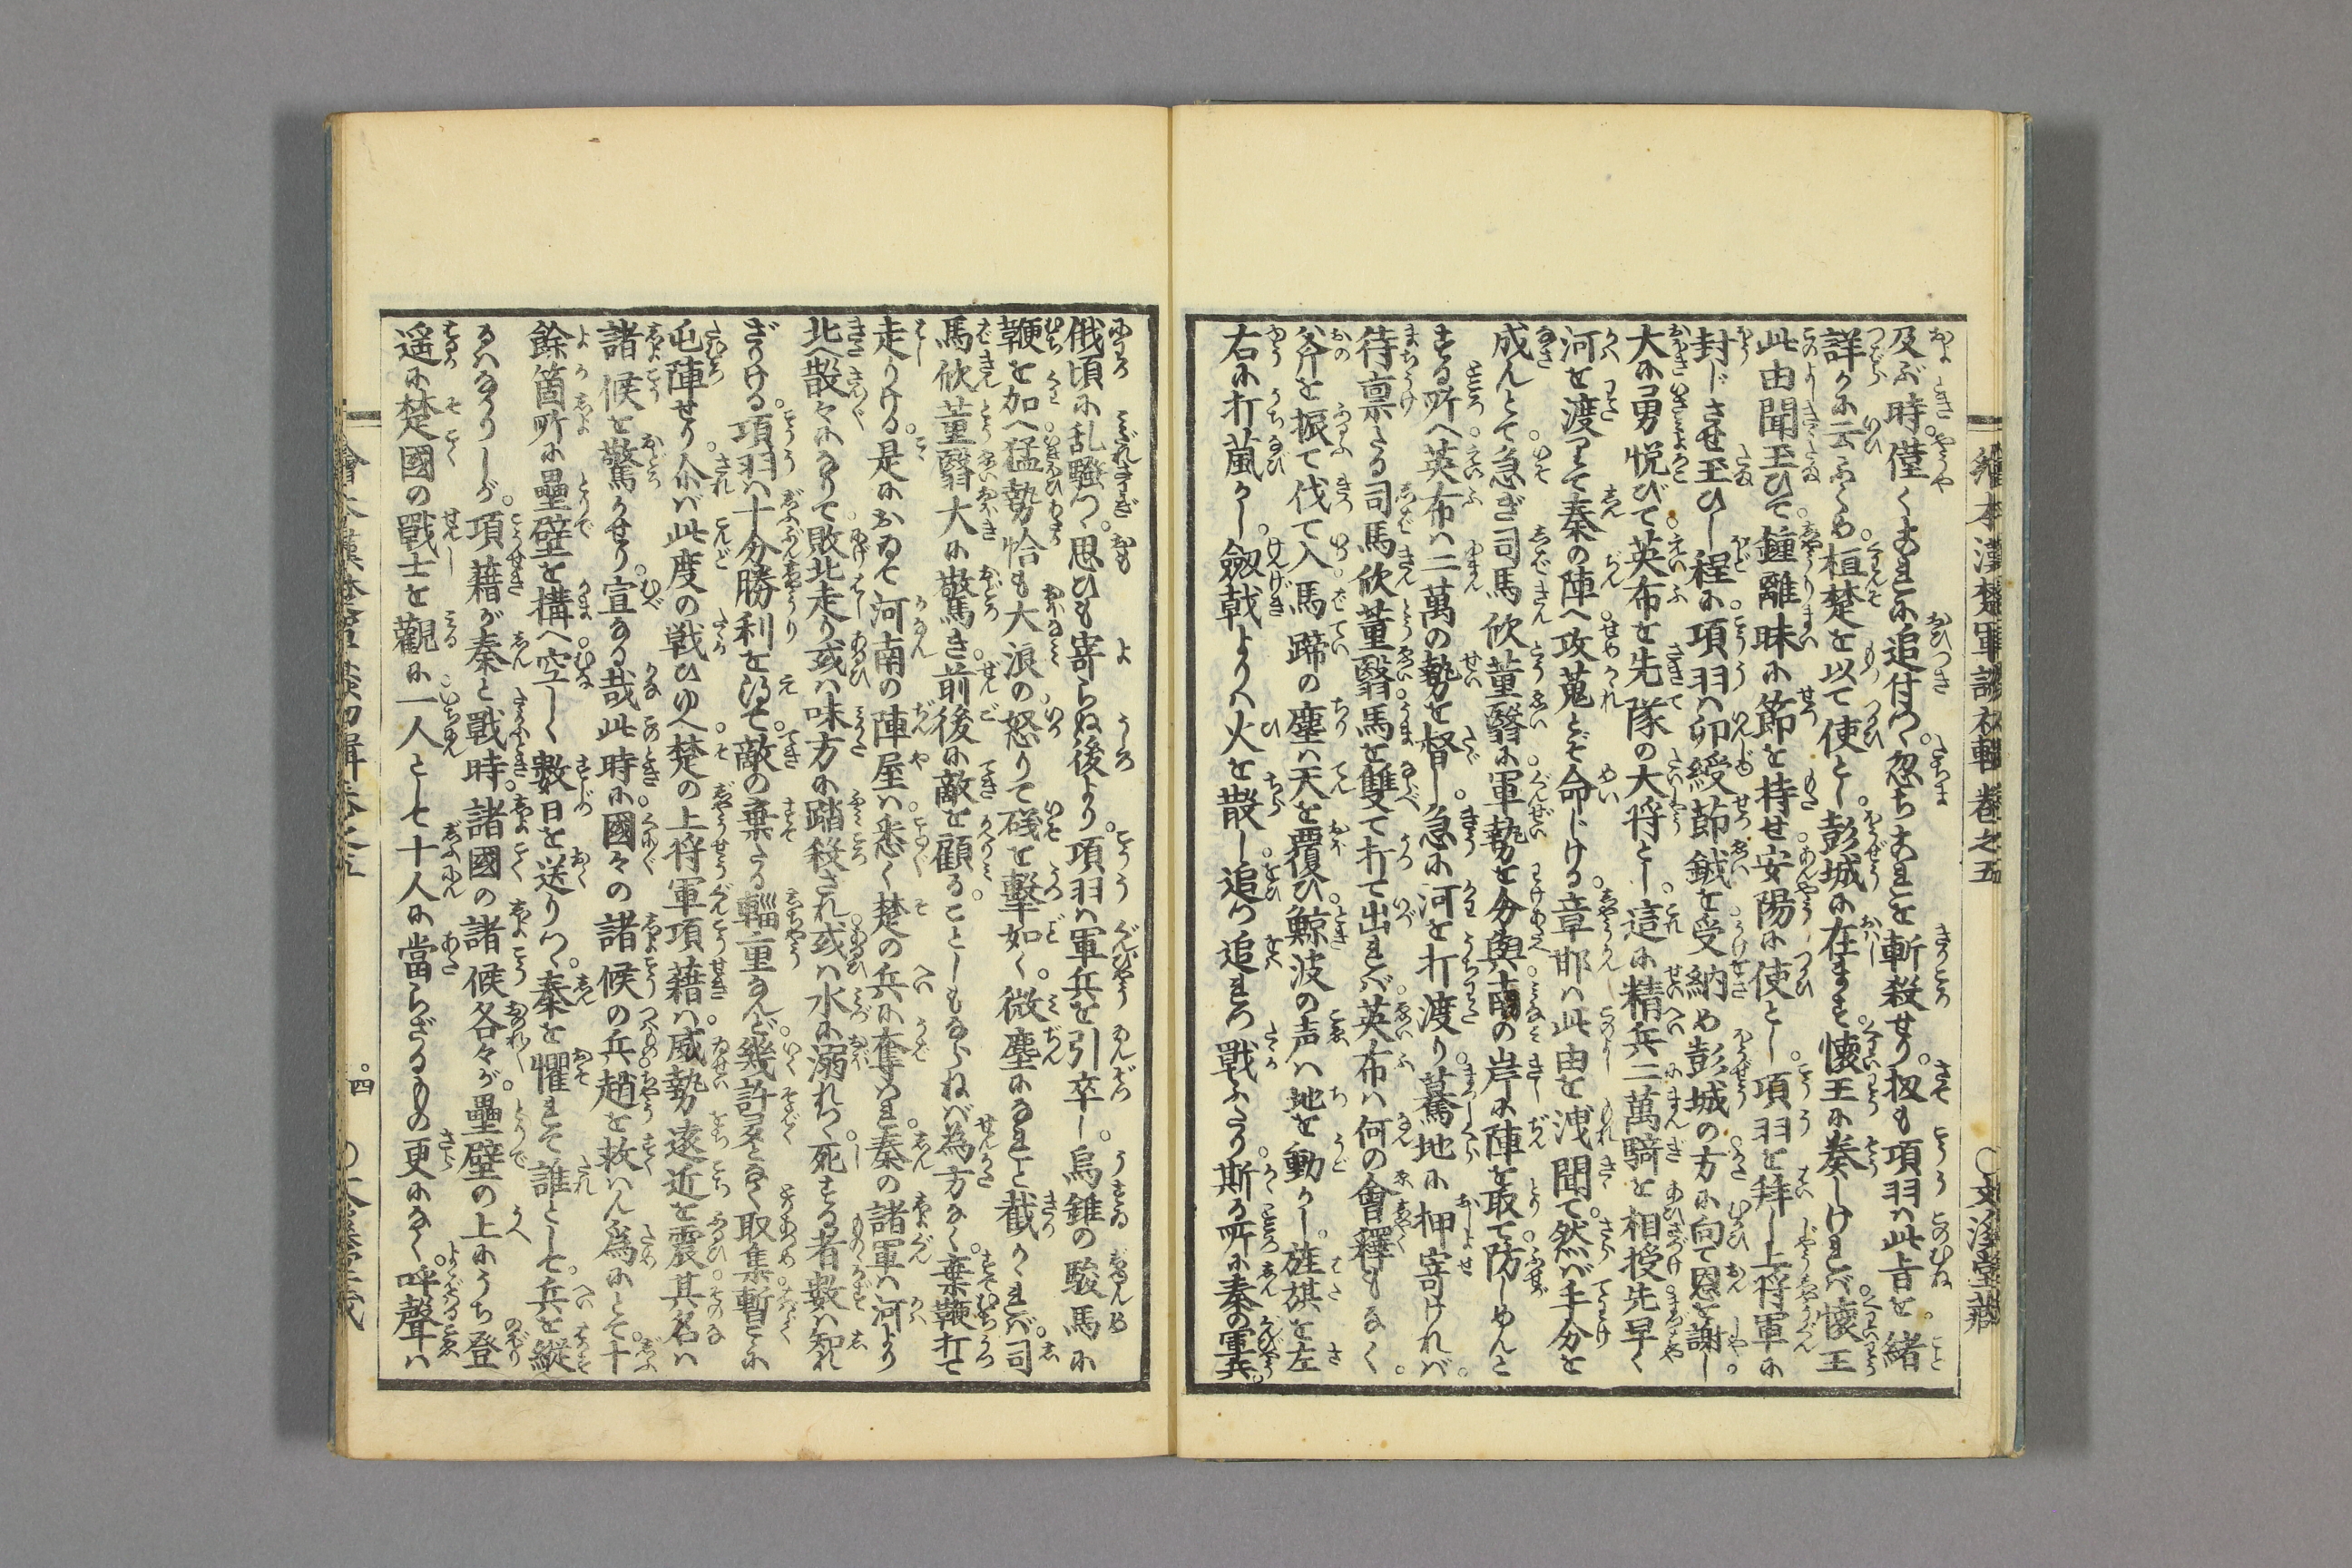 及ぶ時僅くまれに追付つゝ忽ちまれを斬殺せり扨も項羽ハ此旨を緒
詳かに云ふくめ桓楚を以て使とし彭城に在ます懐王に奏しけれバ懐王
此由聞玉ひて鐘離昧に節を持せ安陽に使とし項羽を拜し上将軍に
封じさせ玉ひし程に項羽ハ卯綬節鉞を受納め彭城の方に向て恩を謝し
大に勇悦びて英布を先隊の大将とし這に精兵二萬騎を相授先早く
河を渡りて秦の陣へ攻蒐とぞ命じける章邯ハ此由を洩聞て然バ手分を
成んとて急ぎ司馬欣董翳に軍勢を分與南の岸に陣を取て防しめんと
する所へ英布ハ二萬の勢を督し急に河を打渡り驀地に押寄けれバ
待稟たる司馬欣董翳馬を雙て打て出れバ英布ハ何の會釋もなく
斧を振て伐て入馬蹄の塵ハ天を覆ひ鯨波の声ハ地を動かし旌旗を左
右に打嵐かし劔戟よりハ火を散し追つ追れつ戰ふたり斯る所に秦の軍兵
俄頃に乱騒つゝ思ひも寄らぬ後より項羽ハ軍兵を引卒し烏錐の駿馬に
鞭を加へ猛勢恰も大浪の怒りて磯を撃如く微塵になれと截かくれバ司
馬欣董翳大に驚き前後に敵を顧ることしもならねバ為方なく棄鞭打て
走りける是におゐて河南の陣屋ハ悉く楚の兵に奪ハれ秦の諸軍ハ河より
北へ散々になりて敗北走り或ハ味方に踏殺され或ハ水に溺れつゝ死する者數ハ知れ
ざりける項羽ハ十分勝利を得て敵の棄たる輜重なんど幾許となく取集暫こに
屯陣せり介バ此度の戦ひゆへ楚の上将軍項藉ハ威勢遠近を震其名ハ
諸候を驚かせり宣なる哉此時に國々の諸候の兵趙を救ハん為にとて十
餘箇所に壘壁を構へ空しく數日を送りつゝ秦を懼れて誰とし七兵を縦
るハなかりしが項藉が秦と戰時諸國の諸候各々が壘壁の上にうち登
遥に楚國の戰士を觀に一人とし七十人に當らざるもの更になく呼聲ハ